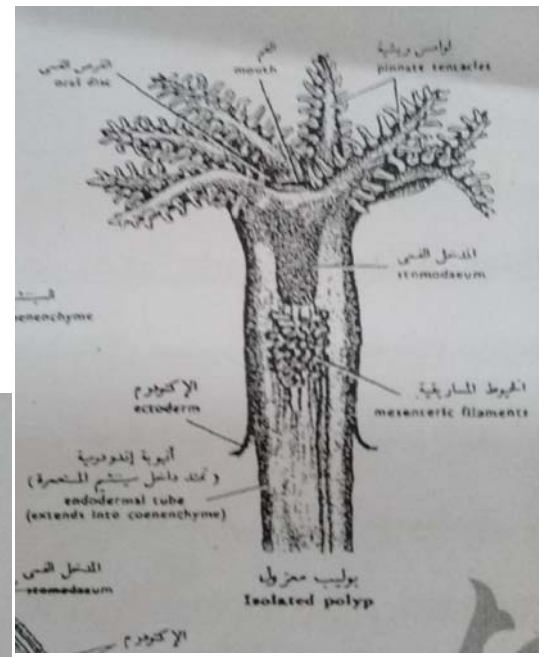 الفم
mouth
لوامس ريشية
pinnate tentacles
القرص الفمى
oral disc
المدخل الفمى
stomodaeum
enenchyme
الخيوط المساريقية
mesenteric filaments
الإكتودرم
ectoderm
أنبوبة إندودرمية
(تمتد داخل سينشيم المستعمرة)
endodermal tube
(extends into coenenchyme)
بوليب معزول
Isolated polyp
المدخل الفمى
stomodaeum
الإكتودرم